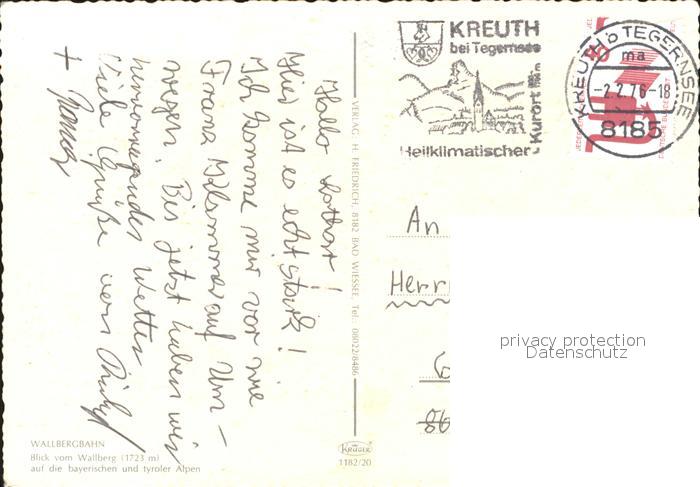 Hallo Lothar!
Hier ist es echt stark!
Ich komme mir vor wie
Franz Klammer auf Um-
wegen. Bis jetzt haben wir
hervorragendes Wetter
Viele Grüße vom
+ Thomas
WALLBERGBAHN
Blick vom Wallberg (1723 m)
auf die bayerischen und tyroler Alpen
VERLAG H. FRIEDRICH, 8182 BAD WIESSEE, Tel. 08022/8486
KRÜGER
1182/20
KREUTH
bei Tegernsee
Heilklimatischer
Kurort
KREUTH b TEGERNSEE
ma
-2.2.76-18
8185
An
Herr
privacy protection
Datenschutz